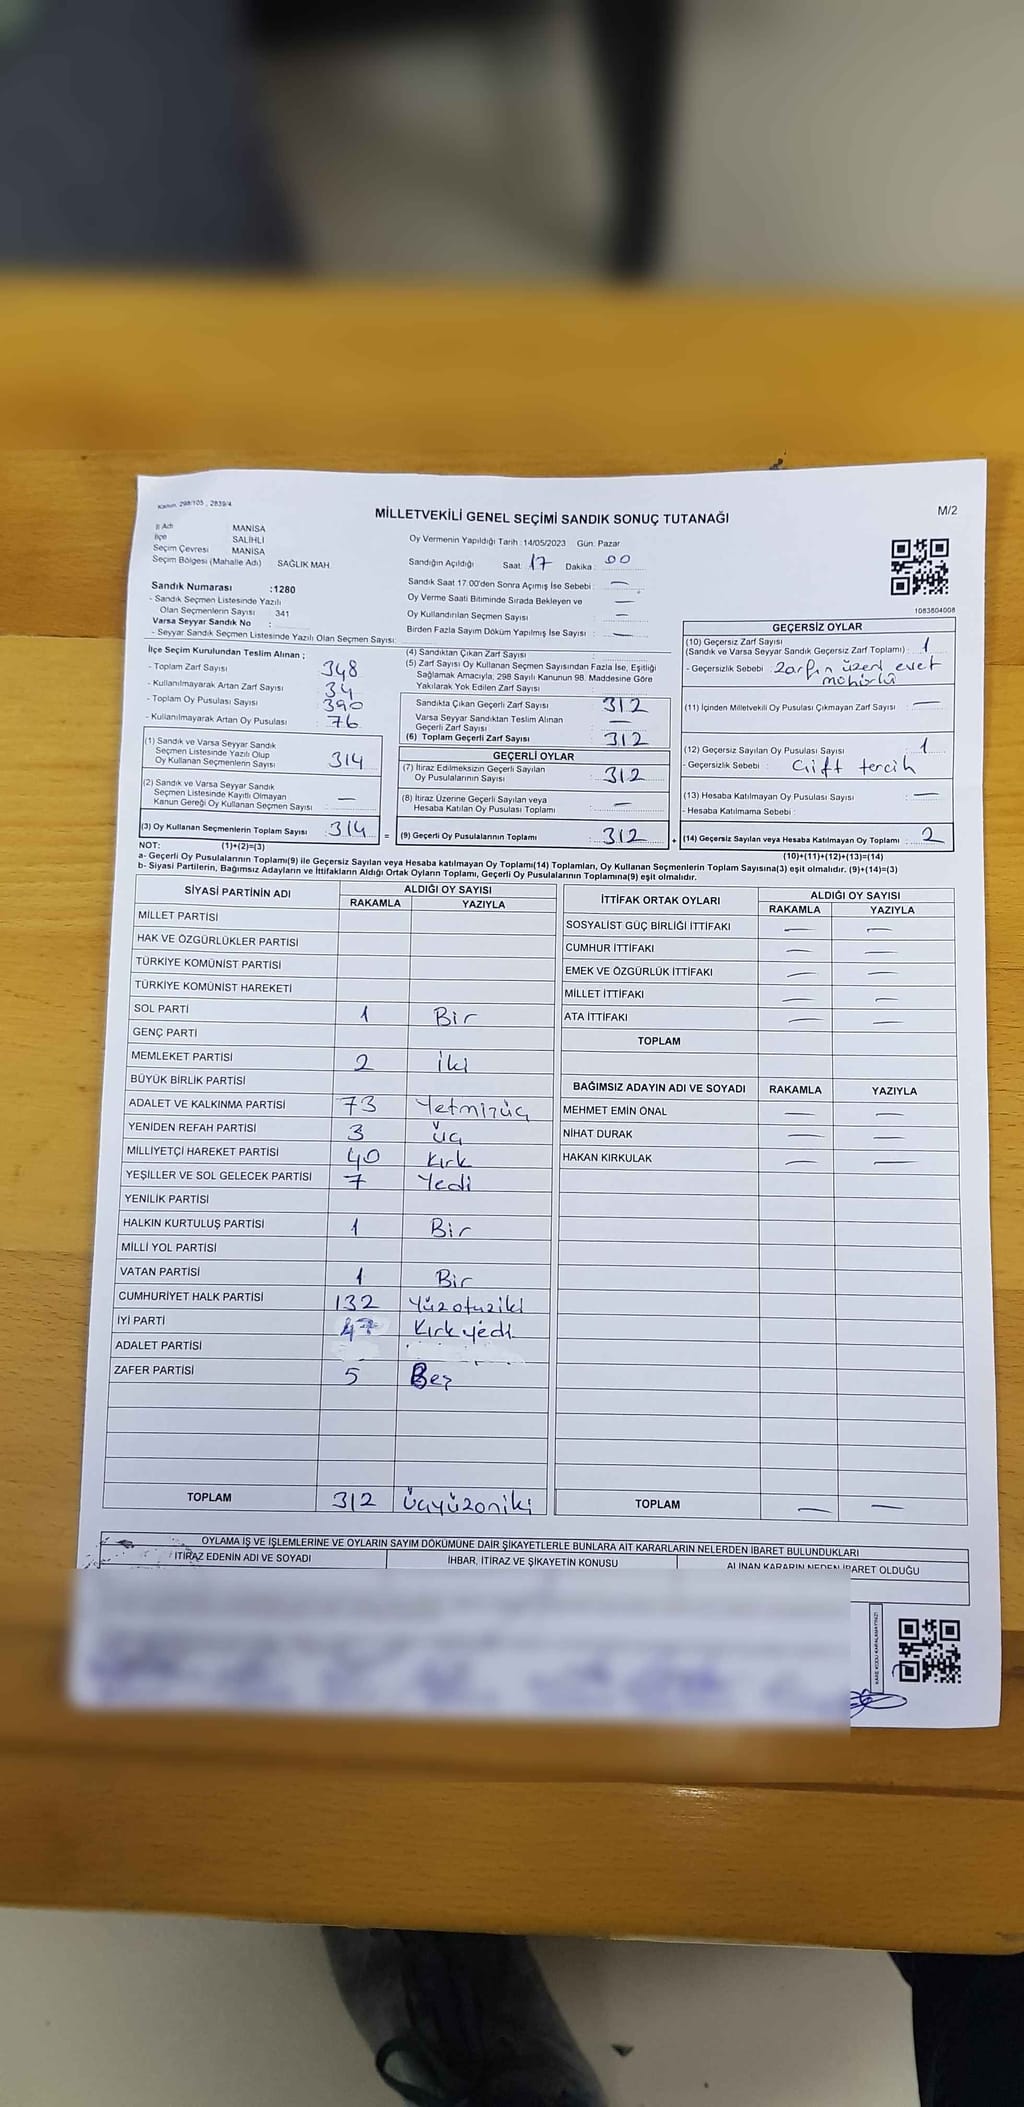 Kanun: 298/105 , 2839/4
M/2
MİLLETVEKİLİ GENEL SEÇİMİ SANDIK SONUÇ TUTANAĞI
İl Adı MANİSA
İlçe SALİHLİ
Seçim Çevresi MANİSA
Seçim Bölgesi (Mahalle Adı) SAĞLIK MAH.
Sandık Numarası :1280
- Sandık Seçmen Listesinde Yazılı
Olan Seçmenlerin Sayısı : 341
Varsa Seyyar Sandık No :
- Seyyar Sandık Seçmen Listesinde Yazılı Olan Seçmen Sayısı:
Oy Vermenin Yapıldığı Tarih :14/05/2023 Gün: Pazar
Sandığın Açıldığı Saat: 17 Dakika: 00
Sandık Saat 17.00'den Sonra Açımış İse Sebebi : —
Oy Verme Saati Bitiminde Sırada Bekleyen ve —
Oy Kullandırılan Seçmen Sayısı : —
Birden Fazla Sayım Döküm Yapılmış İse Sayısı : —
1083604008
İlçe Seçim Kurulundan Teslim Alınan ;
- Toplam Zarf Sayısı 348
- Kullanılmayarak Artan Zarf Sayısı 34
- Toplam Oy Pusulası Sayısı 390
- Kullanılmayarak Artan Oy Pusulası : 76
(1) Sandık ve Varsa Seyyar Sandık
Seçmen Listesinde Yazılı Olup
Oy Kullanan Seçmenlerin Sayısı : 314
(2) Sandık ve Varsa Seyyar Sandık
Seçmen Listesinde Kayıtlı Olmayan
Kanun Gereği Oy Kullanan Seçmen Sayısı : —
(3) Oy Kullanan Seçmenlerin Toplam Sayısı : 314 =
(4) Sandıktan Çıkan Zarf Sayısı :
(5) Zarf Sayısı Oy Kullanan Seçmen Sayısından Fazla İse, Eşitliği
Sağlamak Amacıyla, 298 Sayılı Kanunun 98. Maddesine Göre
Yakılarak Yok Edilen Zarf Sayısı :
Sandıkta Çıkan Geçerli Zarf Sayısı : 312
Varsa Seyyar Sandıktan Teslim Alınan
Geçerli Zarf Sayısı : —
(6) Toplam Geçerli Zarf Sayısı : 312
GEÇERLİ OYLAR
(7) İtiraz Edilmeksizin Geçerli Sayılan
Oy Pusulalarının Sayısı : 312
(8) İtiraz Üzerine Geçerli Sayılan veya
Hesaba Katılan Oy Pusulası Toplamı : —
(9) Geçerli Oy Pusulalarının Toplamı : 312 +
GEÇERSİZ OYLAR
(10) Geçersiz Zarf Sayısı
(Sandık ve Varsa Seyyar Sandık Geçersiz Zarf Toplamı) : 1
- Geçersizlik Sebebi : Zarfın üzeri evet
mühürlü
(11) İçinden Milletvekili Oy Pusulası Çıkmayan Zarf Sayısı : —
(12) Geçersiz Sayılan Oy Pusulası Sayısı : 1
- Geçersizlik Sebebi : Çift tercih
(13) Hesaba Katılmayan Oy Pusulası Sayısı : —
- Hesaba Katılmama Sebebi :
(14) Geçersiz Sayılan veya Hesaba Katılmayan Oy Toplamı : 2
NOT: (1)+(2)=(3) (10)+(11)+(12)+(13)=(14)
a- Geçerli Oy Pusulalarının Toplamı(9) ile Geçersiz Sayılan veya Hesaba katılmayan Oy Toplamı(14) Toplamları, Oy Kullanan Seçmenlerin Toplam Sayısına(3) eşit olmalıdır. (9)+(14)=(3)
b- Siyasi Partilerin, Bağımsız Adayların ve İttifakların Aldığı Ortak Oyların Toplamı, Geçerli Oy Pusulalarının Toplamına(9) eşit olmalıdır.
SİYASİ PARTİNİN ADI ALDIĞI OY SAYISI
RAKAMLA YAZIYLA
MİLLET PARTİSİ
HAK VE ÖZGÜRLÜKLER PARTİSİ
TÜRKİYE KOMÜNİST PARTİSİ
TÜRKİYE KOMÜNİST HAREKETİ
SOL PARTİ 1 Bir
GENÇ PARTİ
MEMLEKET PARTİSİ 2 İki
BÜYÜK BİRLİK PARTİSİ
ADALET VE KALKINMA PARTİSİ 73 Yetmizüç
YENİDEN REFAH PARTİSİ 3 Üç
MİLLİYETÇİ HAREKET PARTİSİ 40 Kırk
YEŞİLLER VE SOL GELECEK PARTİSİ 7 Yedi
YENİLİK PARTİSİ
HALKIN KURTULUŞ PARTİSİ 1 Bir
MİLLİ YOL PARTİSİ
VATAN PARTİSİ 1 Bir
CUMHURİYET HALK PARTİSİ 132 Yüzotuziki
İYİ PARTİ 47 Kırkyedi
ADALET PARTİSİ
ZAFER PARTİSİ 5 Beş
TOPLAM 312 Üçyüzoniki
İTTİFAK ORTAK OYLARI ALDIĞI OY SAYISI
RAKAMLA YAZIYLA
SOSYALİST GÜÇ BİRLİĞİ İTTİFAKI — —
CUMHUR İTTİFAKI — —
EMEK VE ÖZGÜRLÜK İTTİFAKI — —
MİLLET İTTİFAKI — —
ATA İTTİFAKI — —
TOPLAM
BAĞIMSIZ ADAYIN ADI VE SOYADI RAKAMLA YAZIYLA
MEHMET EMİN ÖNAL — —
NİHAT DURAK — —
HAKAN KIRKULAK — —
TOPLAM — —
OYLAMA İŞ VE İŞLEMLERİNE VE OYLARIN SAYIM DÖKÜMÜNE DAİR ŞİKAYETLERLE BUNLARA AİT KARARLARIN NELERDEN İBARET BULUNDUKLARI
İTİRAZ EDENİN ADI VE SOYADI İHBAR, İTİRAZ VE ŞİKAYETİN KONUSU ALINAN KARARIN NEDEN İBARET OLDUĞU
KARE KODU KARALAMAYINIZ!